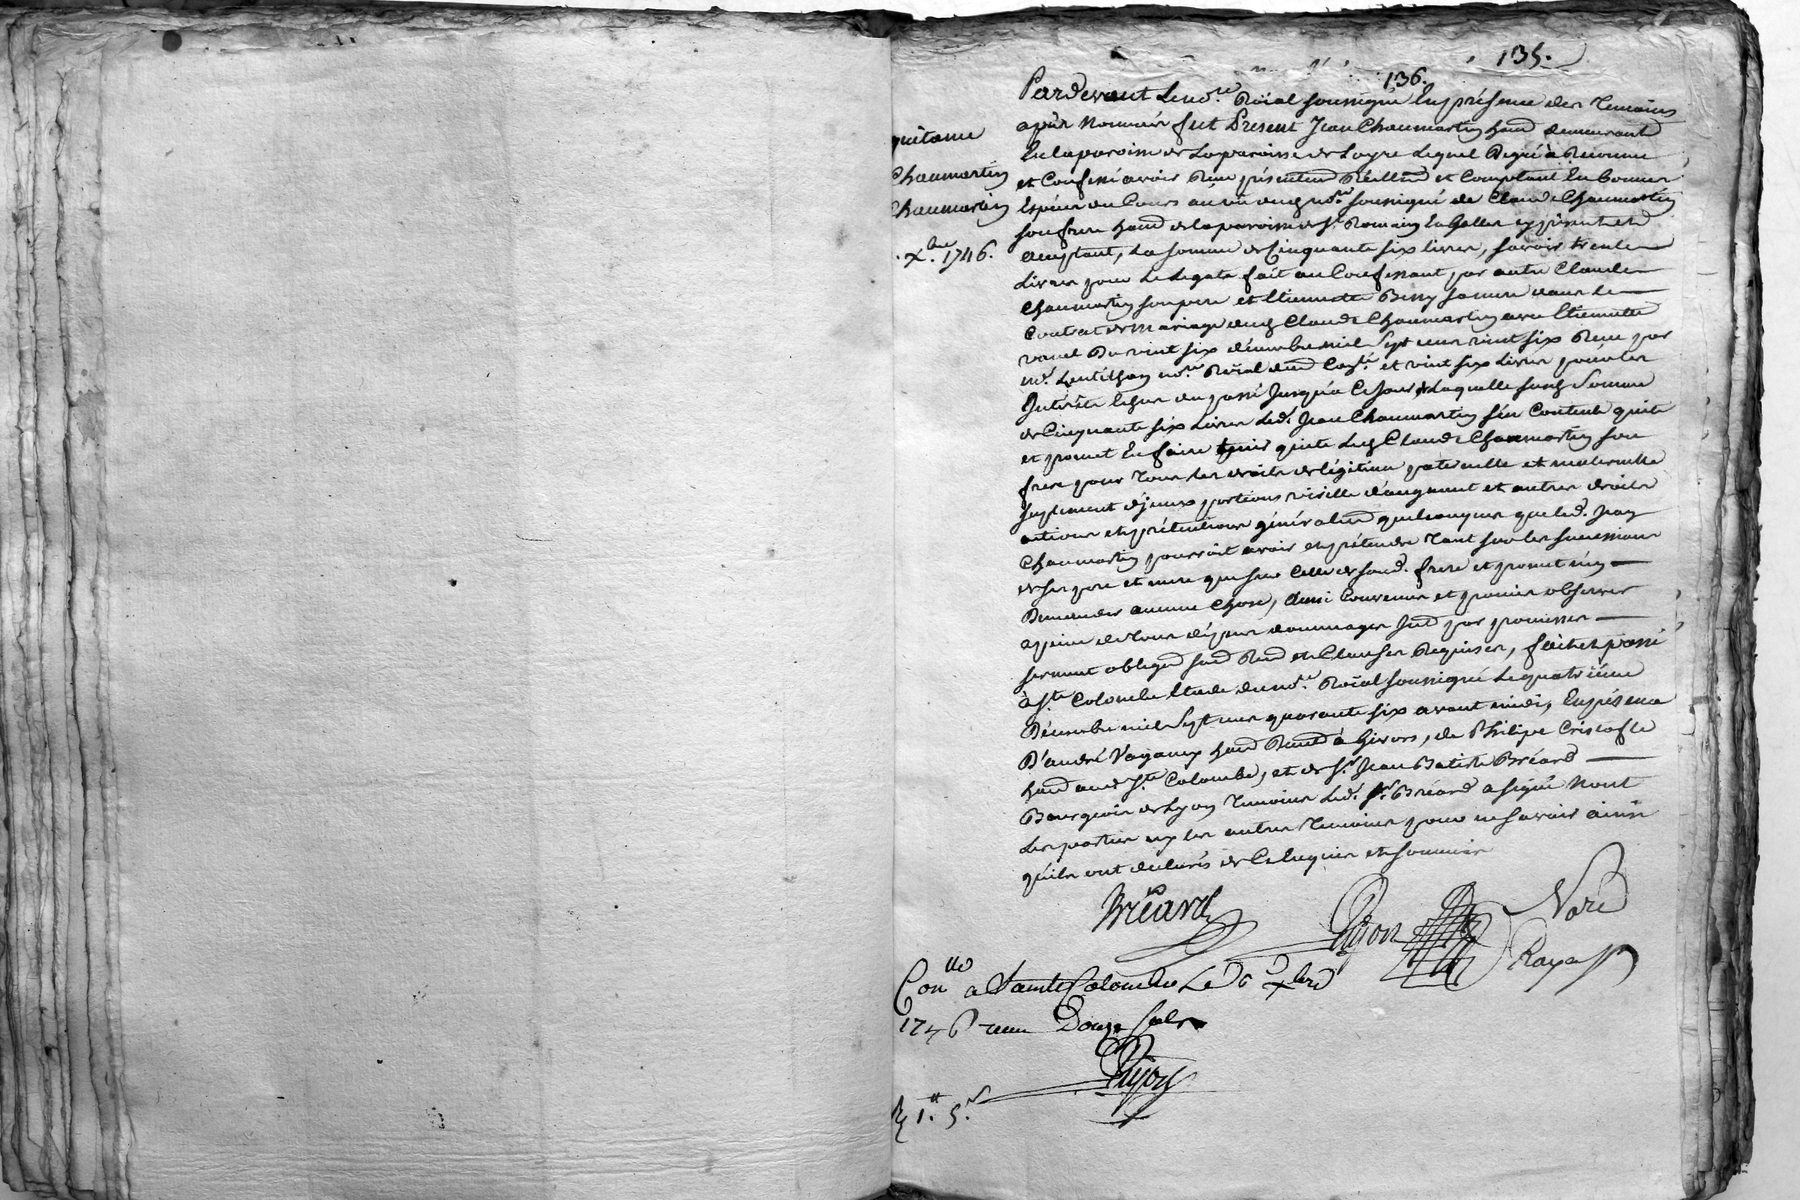 135.
136.
quitance
Chaumartin
Chaumartin
4. xbre 1746.
Pardevant le no.re Roïal soussigné En présence des Temoins
après Nommés fut Present Jean Chaumartin hand demeurant
En la paroisse de la paroisse de Loyre Lequel De gré à Reconnu
et Confessé avoir Reçu présentemt Réellemt et Comptant En bonnes
Espèces du Cours au vû dud no.re soussigné de Claude Chaumartin
son frere hand de la paroisse de St. Romain En Gallen cy présent et
acceptant, La somme de Cinquante six livres, savoir trente
Livres pour le Legate fait au Confessant par autre Claude
Chaumartin son pere et Etiennette Bessy sa mere dans le
Contrat de Mariage dud Claude Chaumartin avec Etiennette
vanel Du vint six décembre mil Sept cens vint six Reçu par
Me. Lentillon no.re Roïal aud et vint six Livres pour les
Intérêts Echus du passé Jusqu'à Ce Jour, de Laquelle susd Somme
de Cinquante six Livres Led. Jean Chaumartin s'en Contente quite
et promet En faire tenir quite Led Claude Chaumartin son
frere pour Tous les droits de légitime paternelle et maternelle
suplement d'jceux portions virille d'augment et autres droits
actions et prétentions généralemt quelconques que led. Jean
Chaumartin pourroit avoir et prétendre Tant sur les successions
de ses pere et mere que sur Celle de sond. frere et promet n'en
Demander aucune Chose, Ainsi Convenu et promis observer
a peine de Tous dépens dommages Jnd par promesses
serment obligaõn soumd Rend et Clauses Requises, fait et passé
à Ste. Colombe Etude du no.re Roïal soussigné Le quatrième
Décembre mil Sept cens quarante six avant midi, En présence
D'andré Vaganay hand Rend à Givors, de Philipe Cristofle
hand aud Ste. Colombe, et de Sr. Jean Batiste Bréard
Bourgeois de Lyon Temoins Led. Sr. Bréard a signé Nont
Les parties ny les autres Temoins pour ne savoir ainsi
qu'ils ont déclarés de Ce Enquis et sommés
Bréard
Pujon
Nore
Royal
Con.llé a Sainte Colombe Le 6 xbre
1746 reçu Douze sols
Pujon
1.tt 5.s